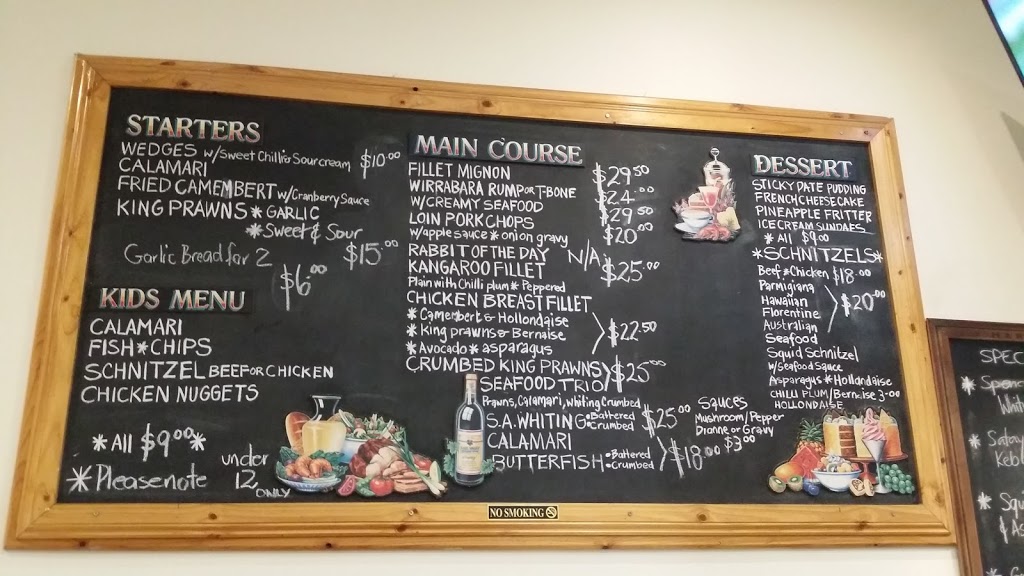 STARTERS
WEDGES w/Sweet Chilli & Sour cream $10.00
CALAMARI
FRIED CAMEMBERT w/Cranberry Sauce
KING PRAWNS * GARLIC
* Sweet & Sour $15.00
Garlic Bread for 2
$6.00
KIDS MENU
CALAMARI
FISH * CHIPS
SCHNITZEL BEEF OR CHICKEN
CHICKEN NUGGETS
* All $9.00 *
* Please note under
12 ONLY
MAIN COURSE
FILLET MIGNON $29.50
WIRRABARA RUMP OR T-BONE $24.00
W/CREAMY SEAFOOD $29.50
LOIN PORK CHOPS $20.00
w/apple sauce * onion gravy
RABBIT OF THE DAY N/A
KANGAROO FILLET $25.00
Plain with Chilli plum * Peppered
CHICKEN BREAST FILLET
* Camembert & Hollondaise
* King prawns & Bernaise $22.50
* Avocado * asparagus
CRUMBED KING PRAWNS $25.00
SEAFOOD TRIO
Prawns, Calamari, Whiting Crumbed
S.A. WHITING • Battered • Crumbed $25.00
CALAMARI
BUTTERFISH • Battered • Crumbed $18.00
Sauces
Mushroom/Pepper
Dianne or Gravy
$3.00
DESSERT
STICKY DATE PUDDING
FRENCH CHEESECAKE
PINEAPPLE FRITTER
ICECREAM SUNDAES
* All $9.00
*SCHNITZELS*
Beef * Chicken $18.00
Parmigiana
Hawaiian $20.00
Florentine
Australian
Seafood
Squid Schnitzel
w/Seafood Sauce
Asparagus * Hollondaise
CHILLI PLUM/Bernaise 3-00
HOLLONDAISE
NO SMOKING
SPEC
* 
Whit
* Satay
Keb
* Squ
& A
*